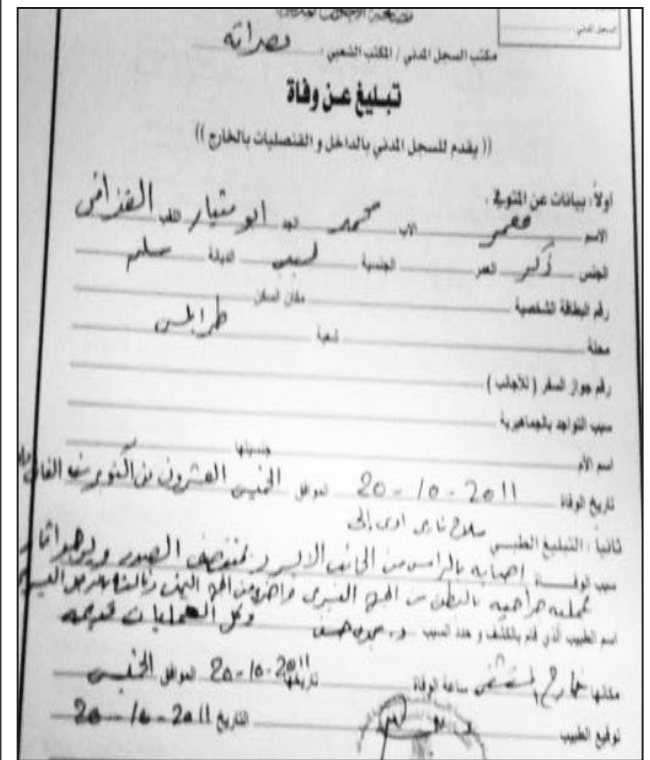 السجل المدني
مكتب السجل المدني / المكتب الشعبي : مصراته
تبليغ عن وفاة
(( يقدم للسجل المدني بالداخل و القنصليات بالخارج ))
أولاً : بيانات عن المتوفى :
الاسم معمر الأب محمد الجد ابو منيار اللقب القذافي
الجنس ذكر العمر الجنسية ليبي الديانة مسلم
رقم البطاقة الشخصية مكان السكن
محلة شعبية طرابلس
رقم جواز السفر ( للأجانب )
سبب التواجد بالجماهيرية
اسم الأم جنسيتها
تاريخ الوفاة 2011 - 10 - 20 الموافق الخميس العشرون من أكتوبر
ثانياً : التبليغ الطبي سلاح ناري ادى إلى
سبب الوفاة اصابه بالرأس من الجانب الايسر و منتصف الصدر ويوجد اثار
عمليه جراحيه بالبطن من الجهة اليسرى واخرى من الجهة اليمنى
اسم الطبيب الذي قام بالكشف و حدد السبب وكل العمليات قديمه
مكانها خارج المستشفى ساعة الوفاة تاريخها 2011-10-20 الموافق الخميس
توقيع الطبيب التاريخ 2011 - 10 - 20